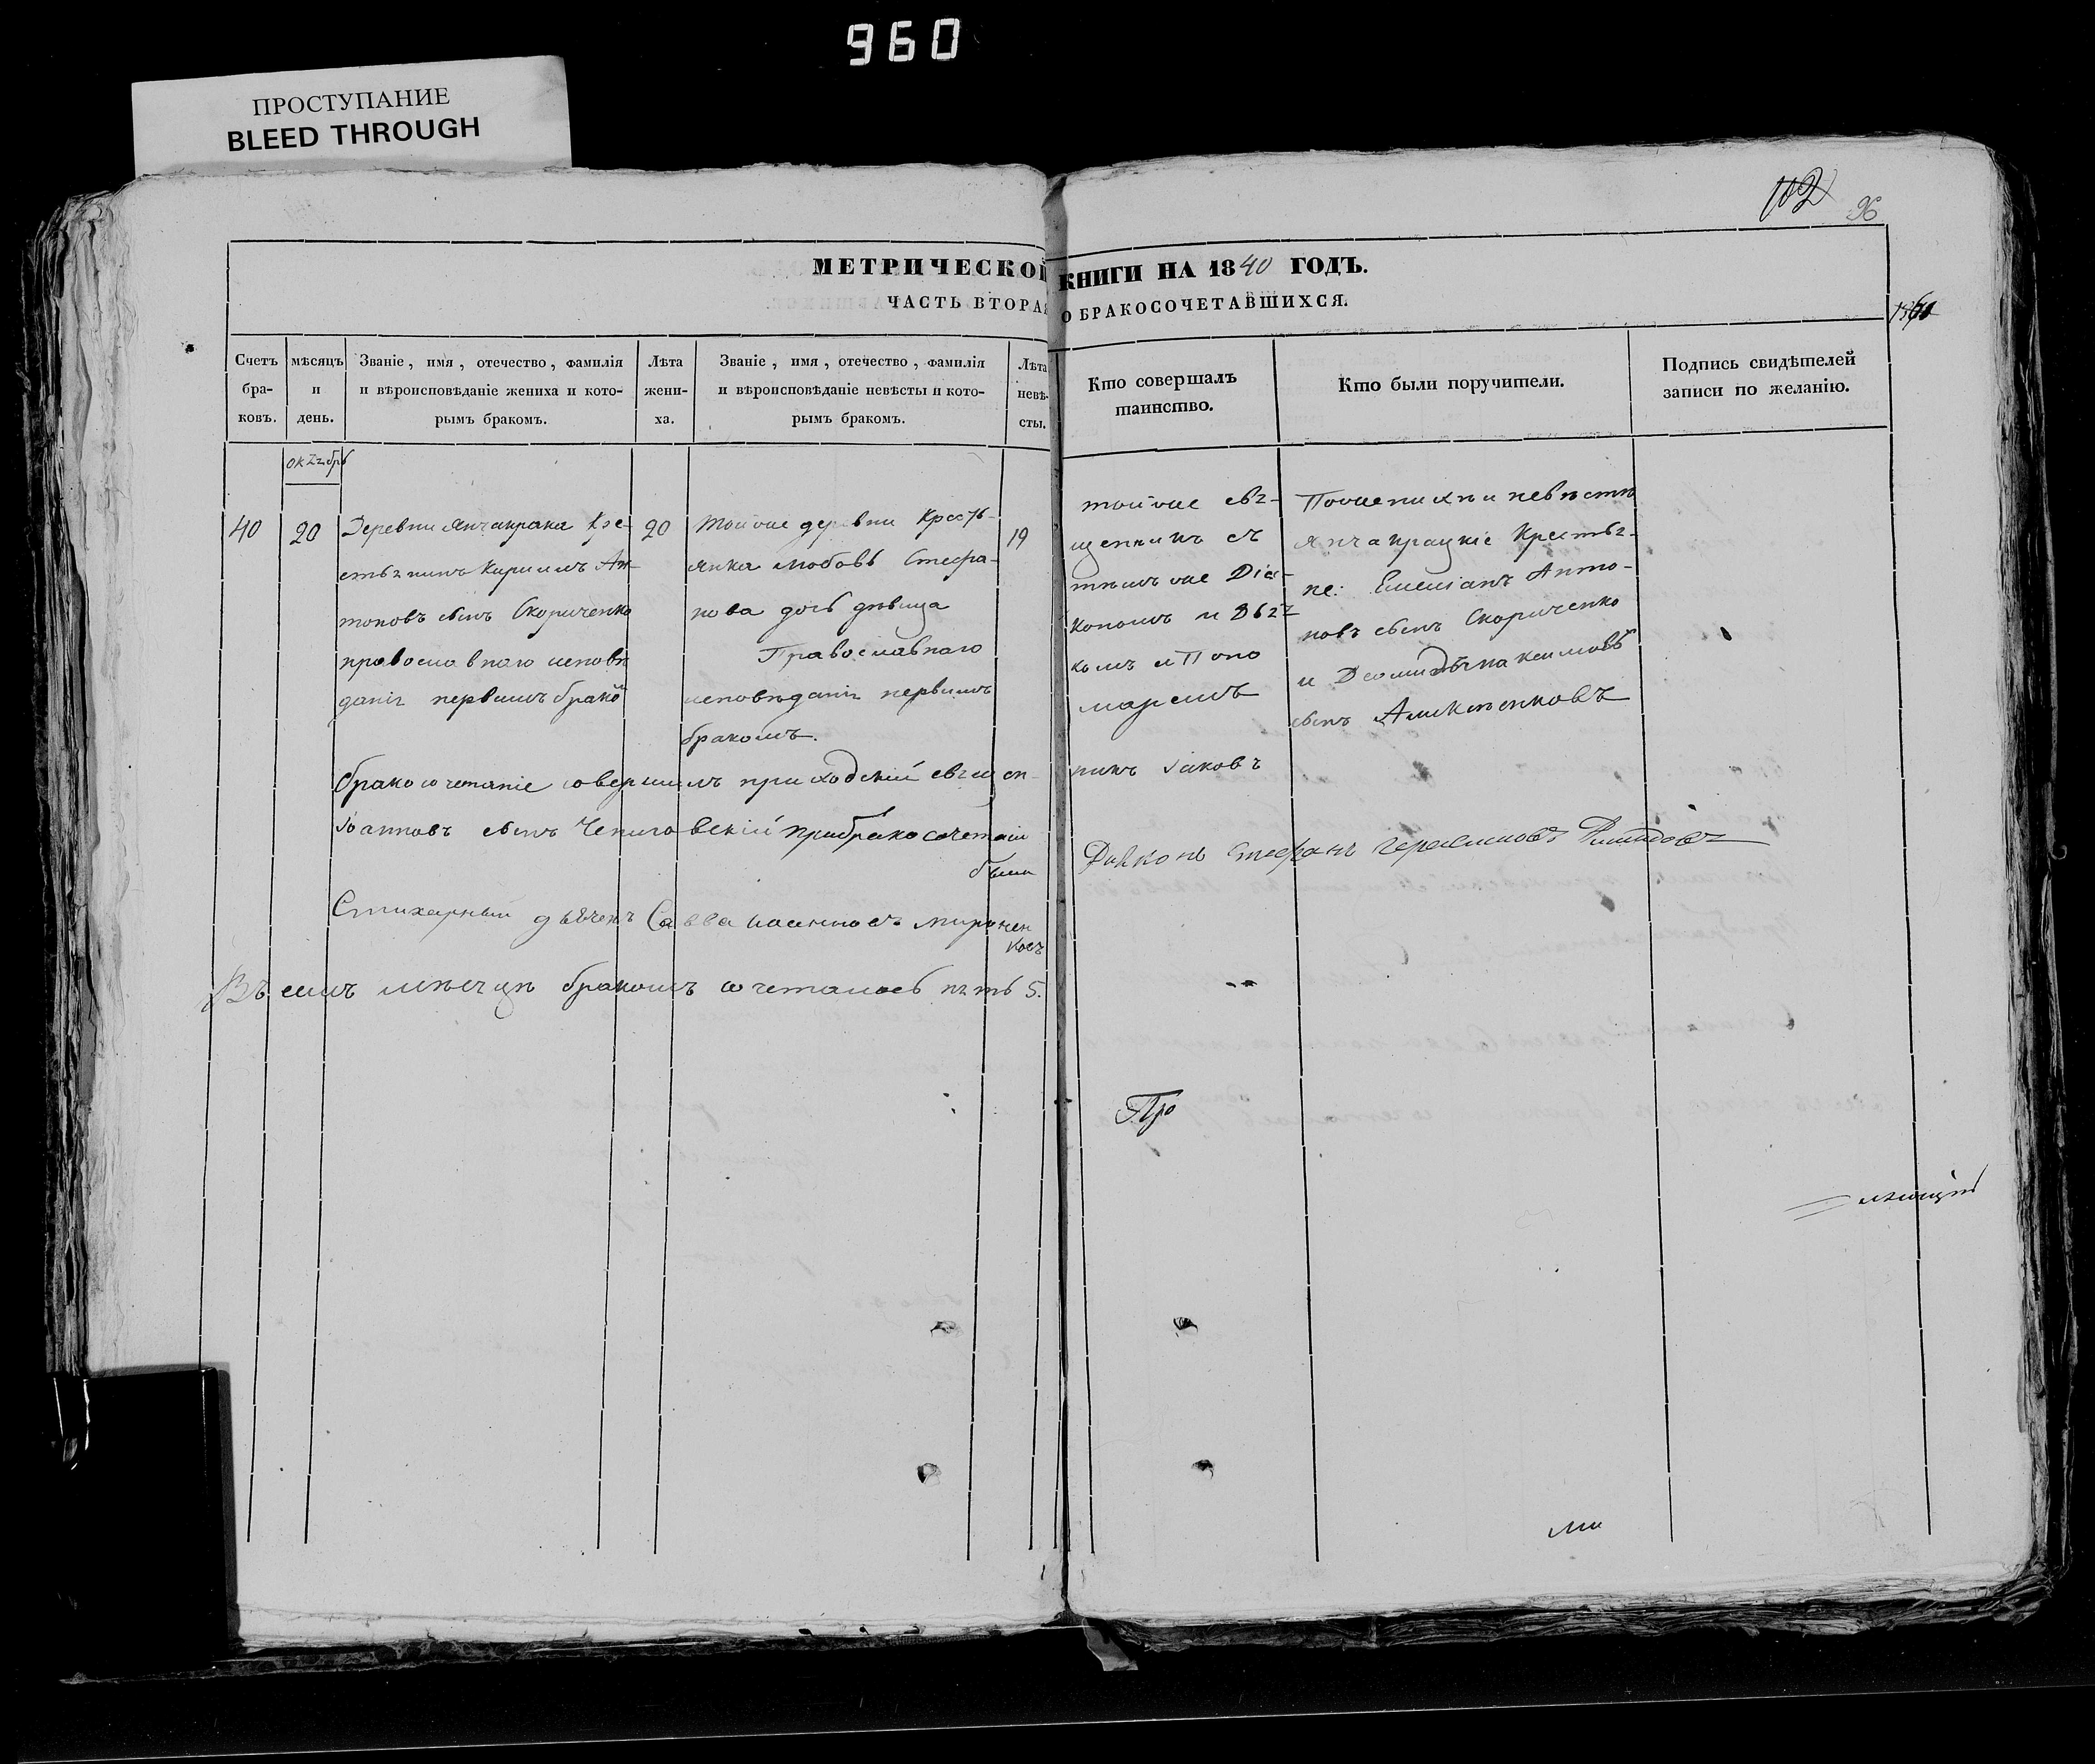 960
ПРОСТУПАНИЕ
BLEED THROUGH
102 96
МЕТРИЧЕСКОЙ КНИГИ НА 1840 ГОДЪ.
ЧАСТЬ ВТОРАЯ О БРАКОСОЧЕТАВШИХСЯ.
Счетъ бра- ковъ.
мѣсяцъ и день.
Званіе, имя, отечество, фамилія
и вѣроисповѣданіе жениха и кото-
рымъ бракомъ.
Лѣта жени- ха.
Званіе, имя, отечество, фамилія
и вѣроисповѣданіе невѣсты и кото-
рымъ бракомъ.
Лѣта невѣ- сты.
Кто совершалъ
таинство.
Кто были поручители.
Подпись свидѣтелей
записи по желанію.
октябрь
40
20
Деревни Янчакрака Кре-
стьянинъ Кириллъ Ан-
тоновъ сынъ Скориченко
православнаго исповѣ
данія первымъ брако
20
Тойже деревни Кресть-
янка Любовь Стефа-
нова дочь дѣвица
Православнаго
исповѣданія первымъ
бракомъ.
19
тойже свя-
щенникъ съ
тѣмъ же Діа-
кономъ и Дья
комъ и Поно
маремъ
По женихѣ и невѣстѣ
янчакрацкіе Крестья-
не: Емеліанъ Анто-
новъ сынъ Скориченко
и
сынъ
бракосочетаніе совершилъ приходскій священ-
никъ Іаковъ
Іоанновъ сынъ при бракосочетаніи
были
Діяконъ Стефанъ Герасимовъ
Стихарный дьячекъ Савва Иоанновъ миронен
ковъ
Въ семъ мѣсяцѣ бракомъ сочеталось пять 5.
Про